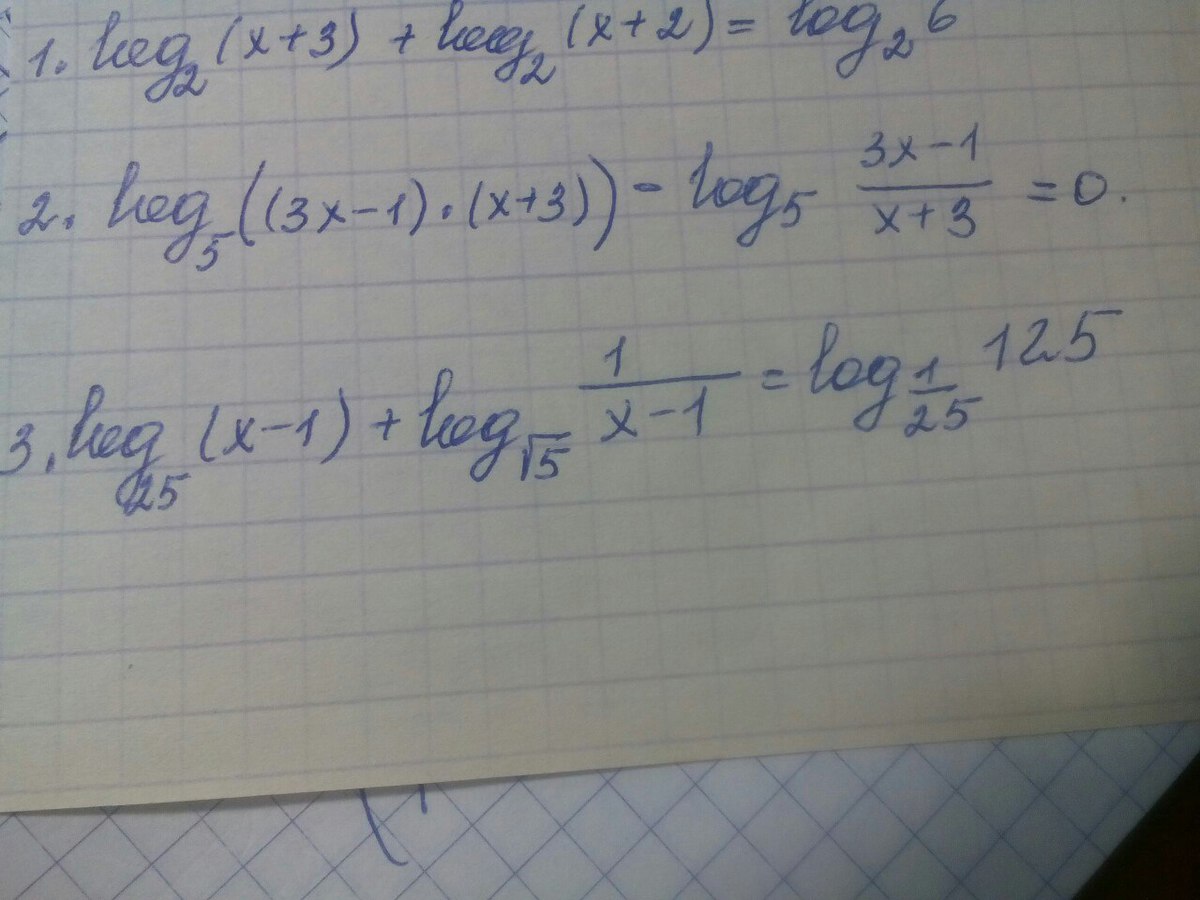 1. log₂(x+3) + log₂(x+2) = log₂6
2. log₅((3x-1)·(x+3)) - log₅ (3x-1)/(x+3) = 0.
3. log₂₅(x-1) + log_√5 1/(x-1) = log_1/25 125